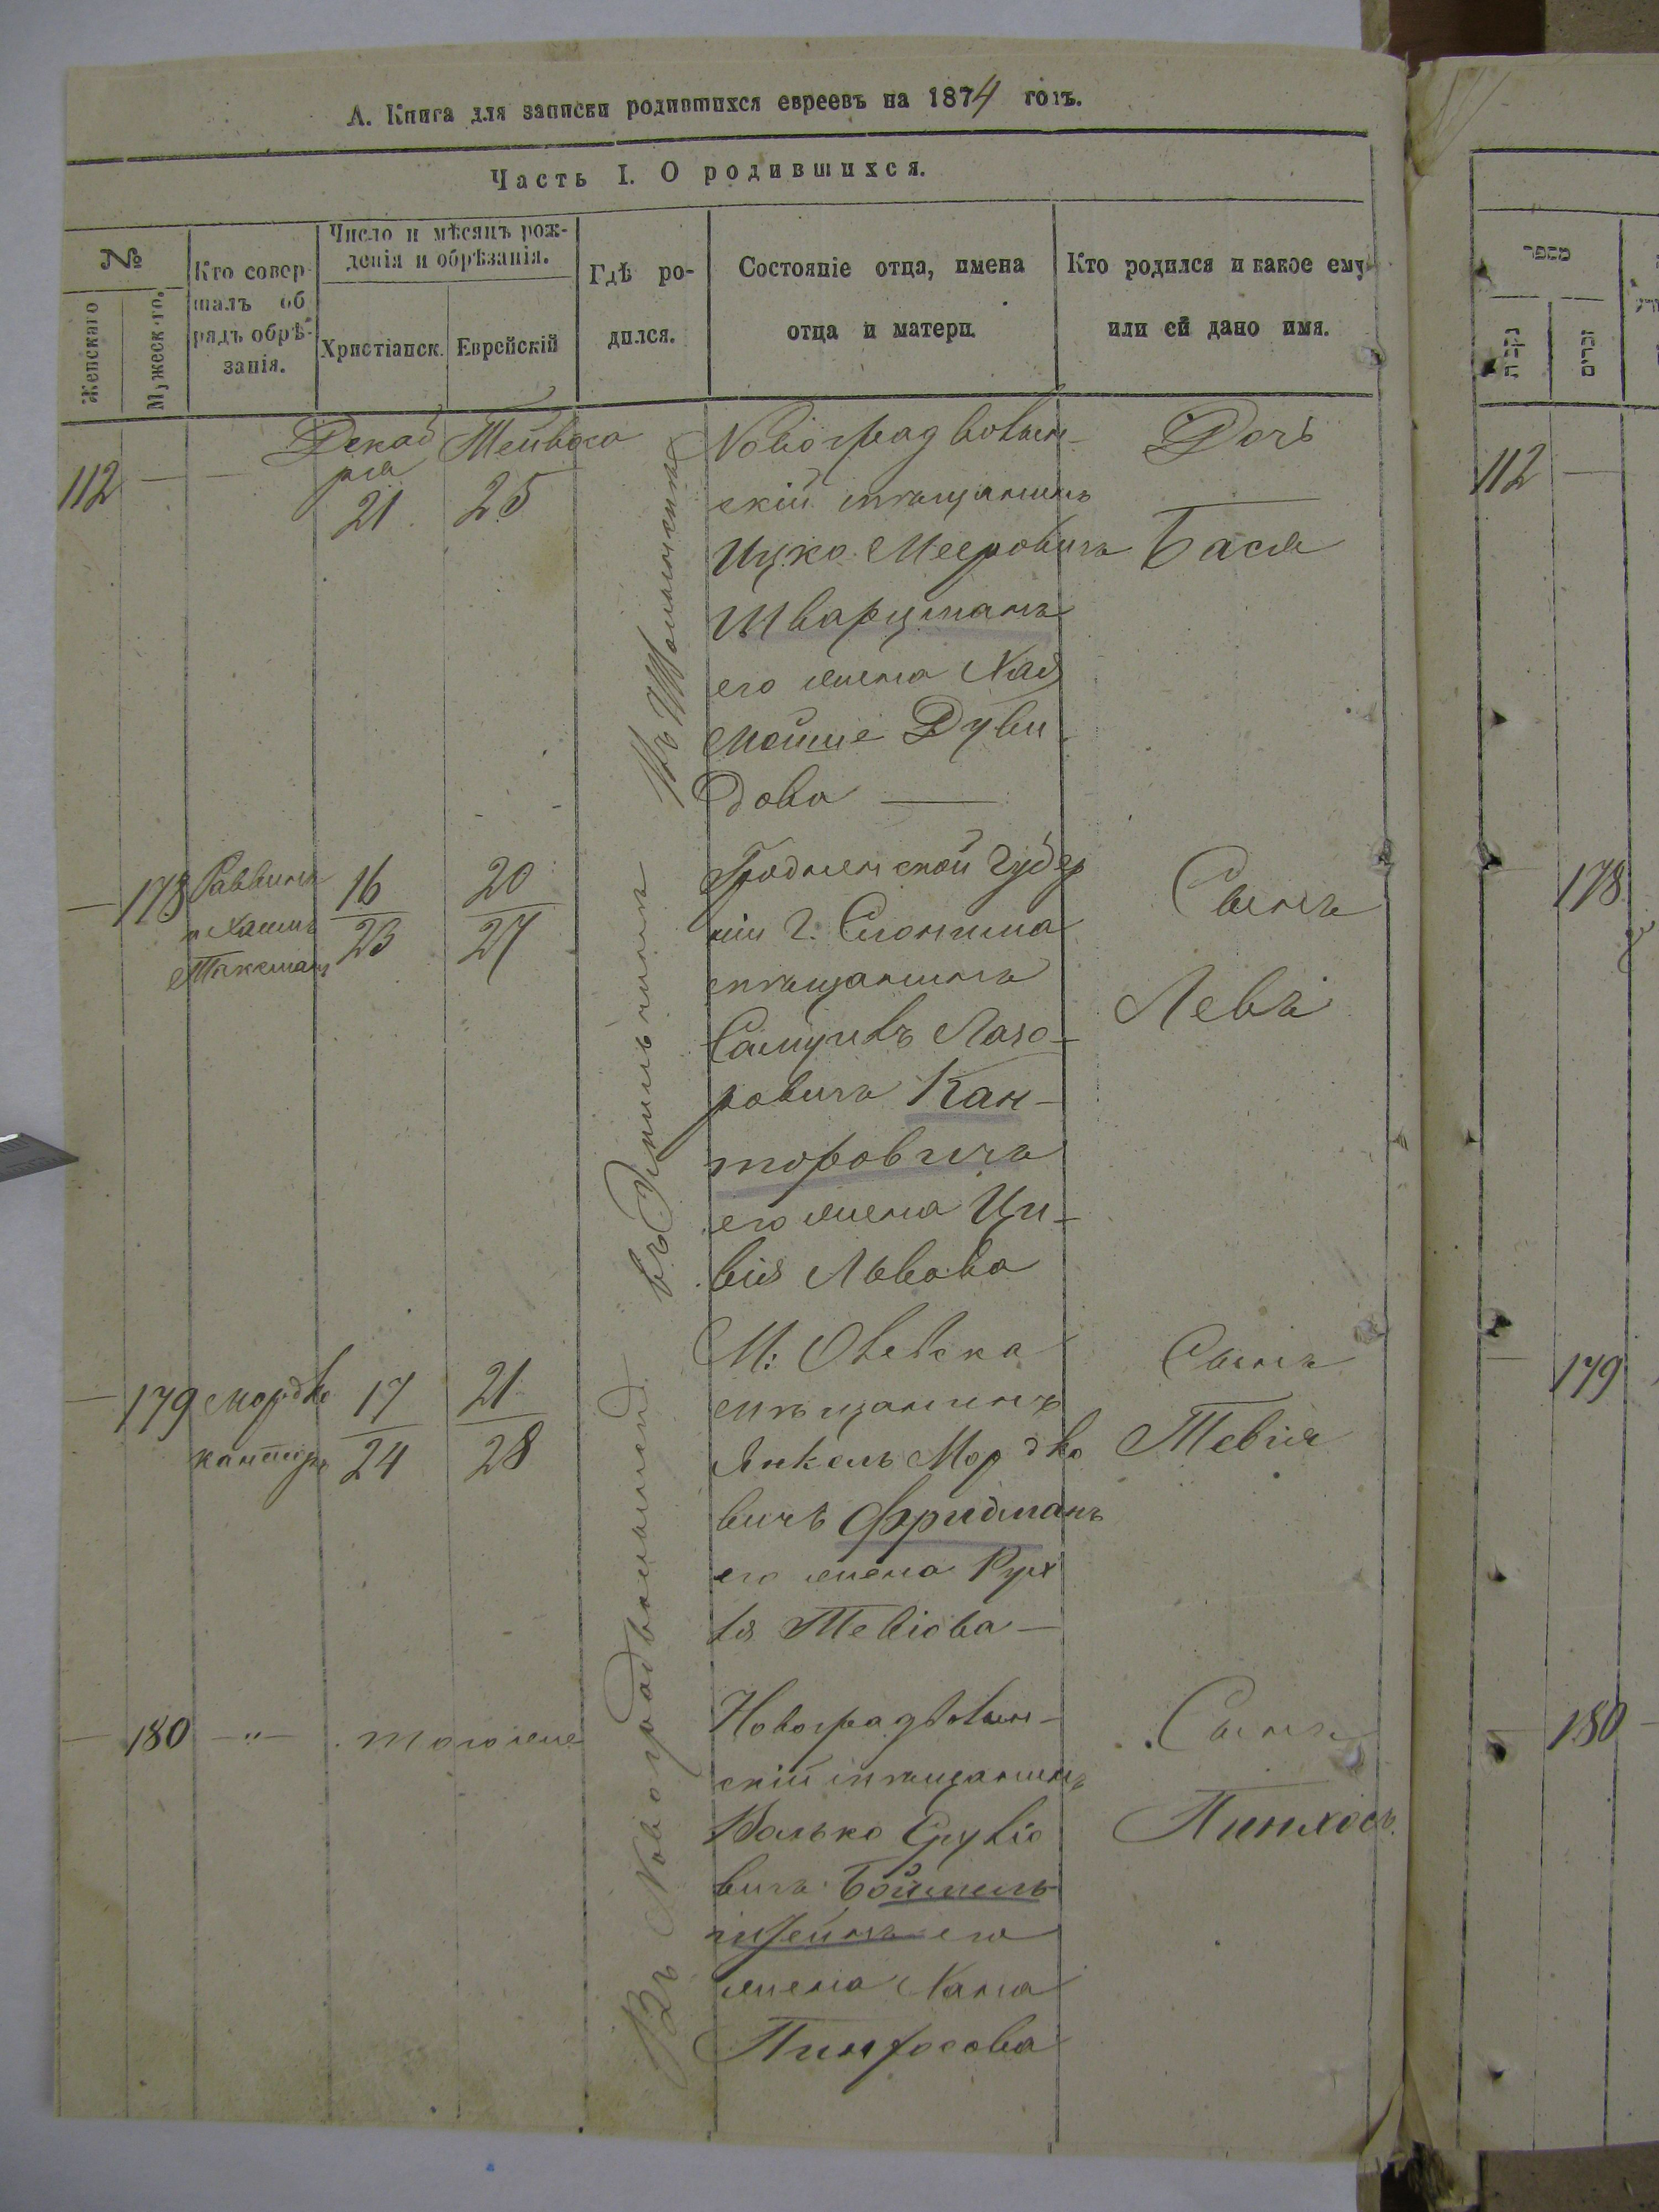 А. Книга для записки родившихся евреевъ на 1874 годъ.
Часть I. О родившихся.
№
Женскаго
Мужеск-го.
Кто совер-
шалъ об
рядъ обрѣ-
занія.
Число и мѣсяцъ рож-
денія и обрѣзанія.
Христіанск.
Еврейскій
Гдѣ ро-
дился.
Состояніе отца, имена
отца и матери.
Кто родился и какое ему
или ей дано имя.
מספר
נקבה
זכרים
112 — —
Декаб
ря
21
Тейвеса
25
Новоградволын-
скій мѣщанинъ
Ицко Мееровичъ
Шварцманъ
его жена Хая
Мойше Дуви
дова —
Дочь
Бася
112 —
— 178
Раввинъ
16
23
20
27
Гродненской губер
ніи г. Слонима
мѣщанинъ
Самуилъ Лазо-
ровичъ Кан-
торовичъ
его жена Ци-
вія Львова
Сынъ
Левъ
178
— 179
Мордко
канторъ
17
24
21
28
М: Олевска
мѣщанинъ
Янкель Мордко
вичъ Фридманъ
его жена Рух
ля Тевіова —
Сынъ
Тевія
— 179
— 180 — " —
тогоже
Новоградволын-
скій мѣщанинъ
Волько Сруліо
вичъ Боймель-
штейнъ его
жена Хана
Пинхосова
Сынъ
Пинхосъ.
— 180 —
Въ Новоградволынск